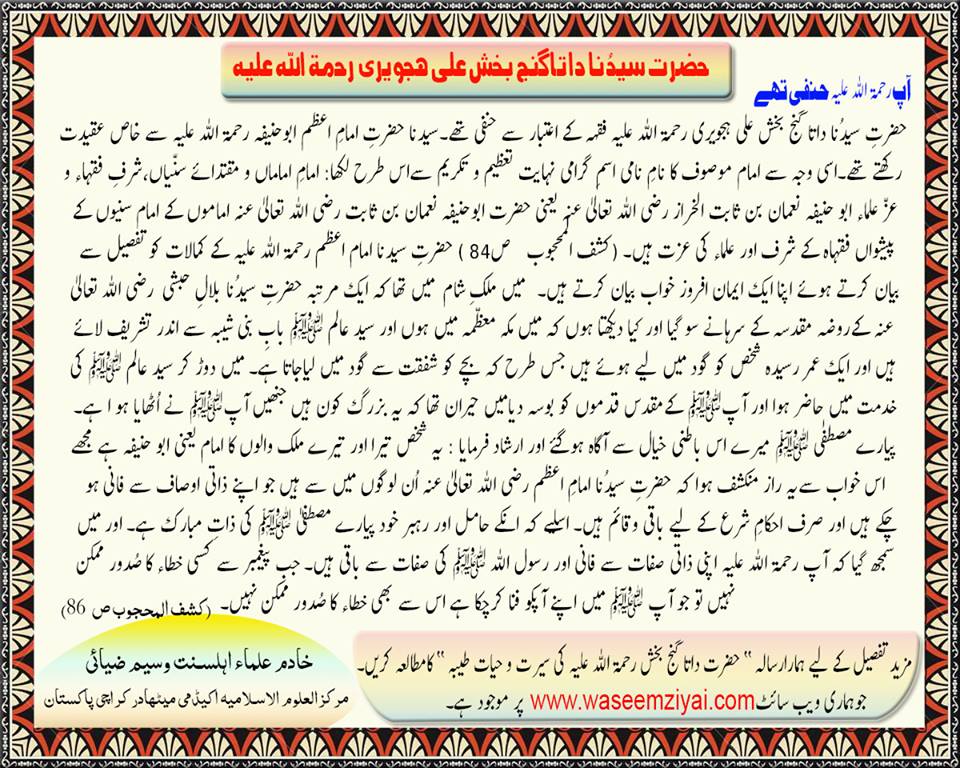 حضرت سیدُنا داتا گنج بخش علی ہجویری رحمۃ اللہ علیہ
آپ رحمۃ اللہ علیہ حنفی تھے
حضرتِ سیدُنا داتا گنج بخش علی ہجویری رحمۃ اللہ علیہ فقہہ کے اعتبار سے حنفی تھے۔سیدنا حضرتِ امام اعظم ابوحنیفہ رحمۃ اللہ علیہ سے خاص عقیدت
رکھتے تھے۔اسی وجہ سے امام موصوف کا نامِ نامی اسمِ گرامی نہایت تعظیم و تکریم سےاس طرح لکھا: امامِ اماماں و مقتدائے سنّیاں،شرفِ فقہاء و
عزِّ علماء ابو حنیفہ نعمان بن ثابت الخراز رضی اللہ تعالیٰ عنہ یعنی حضرت ابوحنیفہ نعمان بن ثابت رضی اللہ تعالیٰ عنہ اماموں کے امام سنیوں کے
پیشواں فقہاہ کے شرف اور علماء کی عزت ہیں۔ (کشف المحجوب ص84 ) حضرتِ سیدنا امام اعظم رحمۃ اللہ علیہ کے کمالات کو تفصیل سے
بیان کرتے ہوئے اپنا ایک ایمان افروز خواب بیان کرتے ہیں۔ میں ملکِ شام میں تھا کہ ایک مرتبہ حضرتِ سیدُنا بلالِ حبشی رضی اللہ تعالیٰ
عنہ کےروضہ مقدسہ کے سرہانے سو گیا اور کیا دیکھتا ہوں کہ میں مکہ معظّمہ میں ہوں اور سید عالم ﷺ بابِ بنی شیبہ سے اندر تشریف لائے
ہیں اور ایک عمر رسیدہ شخص کو گود میں لیے ہوئے ہیں جس طرح کہ بچے کو شفقت سے گود میں لیاجاتا ہے۔ میں دوڑ کر سید عالم ﷺ کی
خدمت میں حاضر ہوا اور آپﷺ کےمقدس قدموں کو بوسہ دیامیں حیران تھا کہ یہ بزرگ کون ہیں جنھیں آپﷺ نے اُٹھایا ہو ا ہے۔
پیارے مصطفٰی ﷺ میرے اس باطنی خیال سے آگاہ ہوگئے اور ارشاد فرمایا : یہ شخص تیرا اور تیرے ملک والوں کا امام یعنی ابو حنیفہ ہے مجھے
اس خواب سےیہ راز منکشف ہوا کہ حضرتِ سیدُنا امامِ اعظم رضی اللہ تعالیٰ عنہ اُن لوگوں میں سے ہیں جو اپنے ذاتی اوصاف سے فانی ہو
چکے ہیں اور صرف احکامِ شرع کے لیے باقی و قائم ہیں۔ اسلیے کہ انکے حامل اور رہبر خود پیارے مصطفیٰ ﷺ کی ذاتِ مبارک ہے۔ اور میں
سمجھ گیا کہ آپ رحمۃ اللہ علیہ اپنی ذاتی صفات سے فانی اور رسول اللہ ﷺ کی صفات سے باقی ہیں۔ جب پیغمبر سے کسی خطاء کا صُدور ممکن
نہیں تو جو آپ ﷺ میں اپنے آپکو فنا کرچکا ہے اس سے بھی خطاء کا صُدور ممکن نہیں۔ (کشف المحجوب ص 86)
مزید تفصیل کے لیے ہمارارسالہ " حضرت داتا گنج بخش رحمۃ اللہ علیہ کی سیرت و حیات طیبہ " کامطالعہ کریں۔
جوہماری ویب سائٹ www.waseemziyai.com پر موجود ہے۔
خادم علماء اہلسنت وسیم ضیائی
مرکزالعلوم الاسلامیہ اکیڈمی میٹھادر کراچی پاکستان